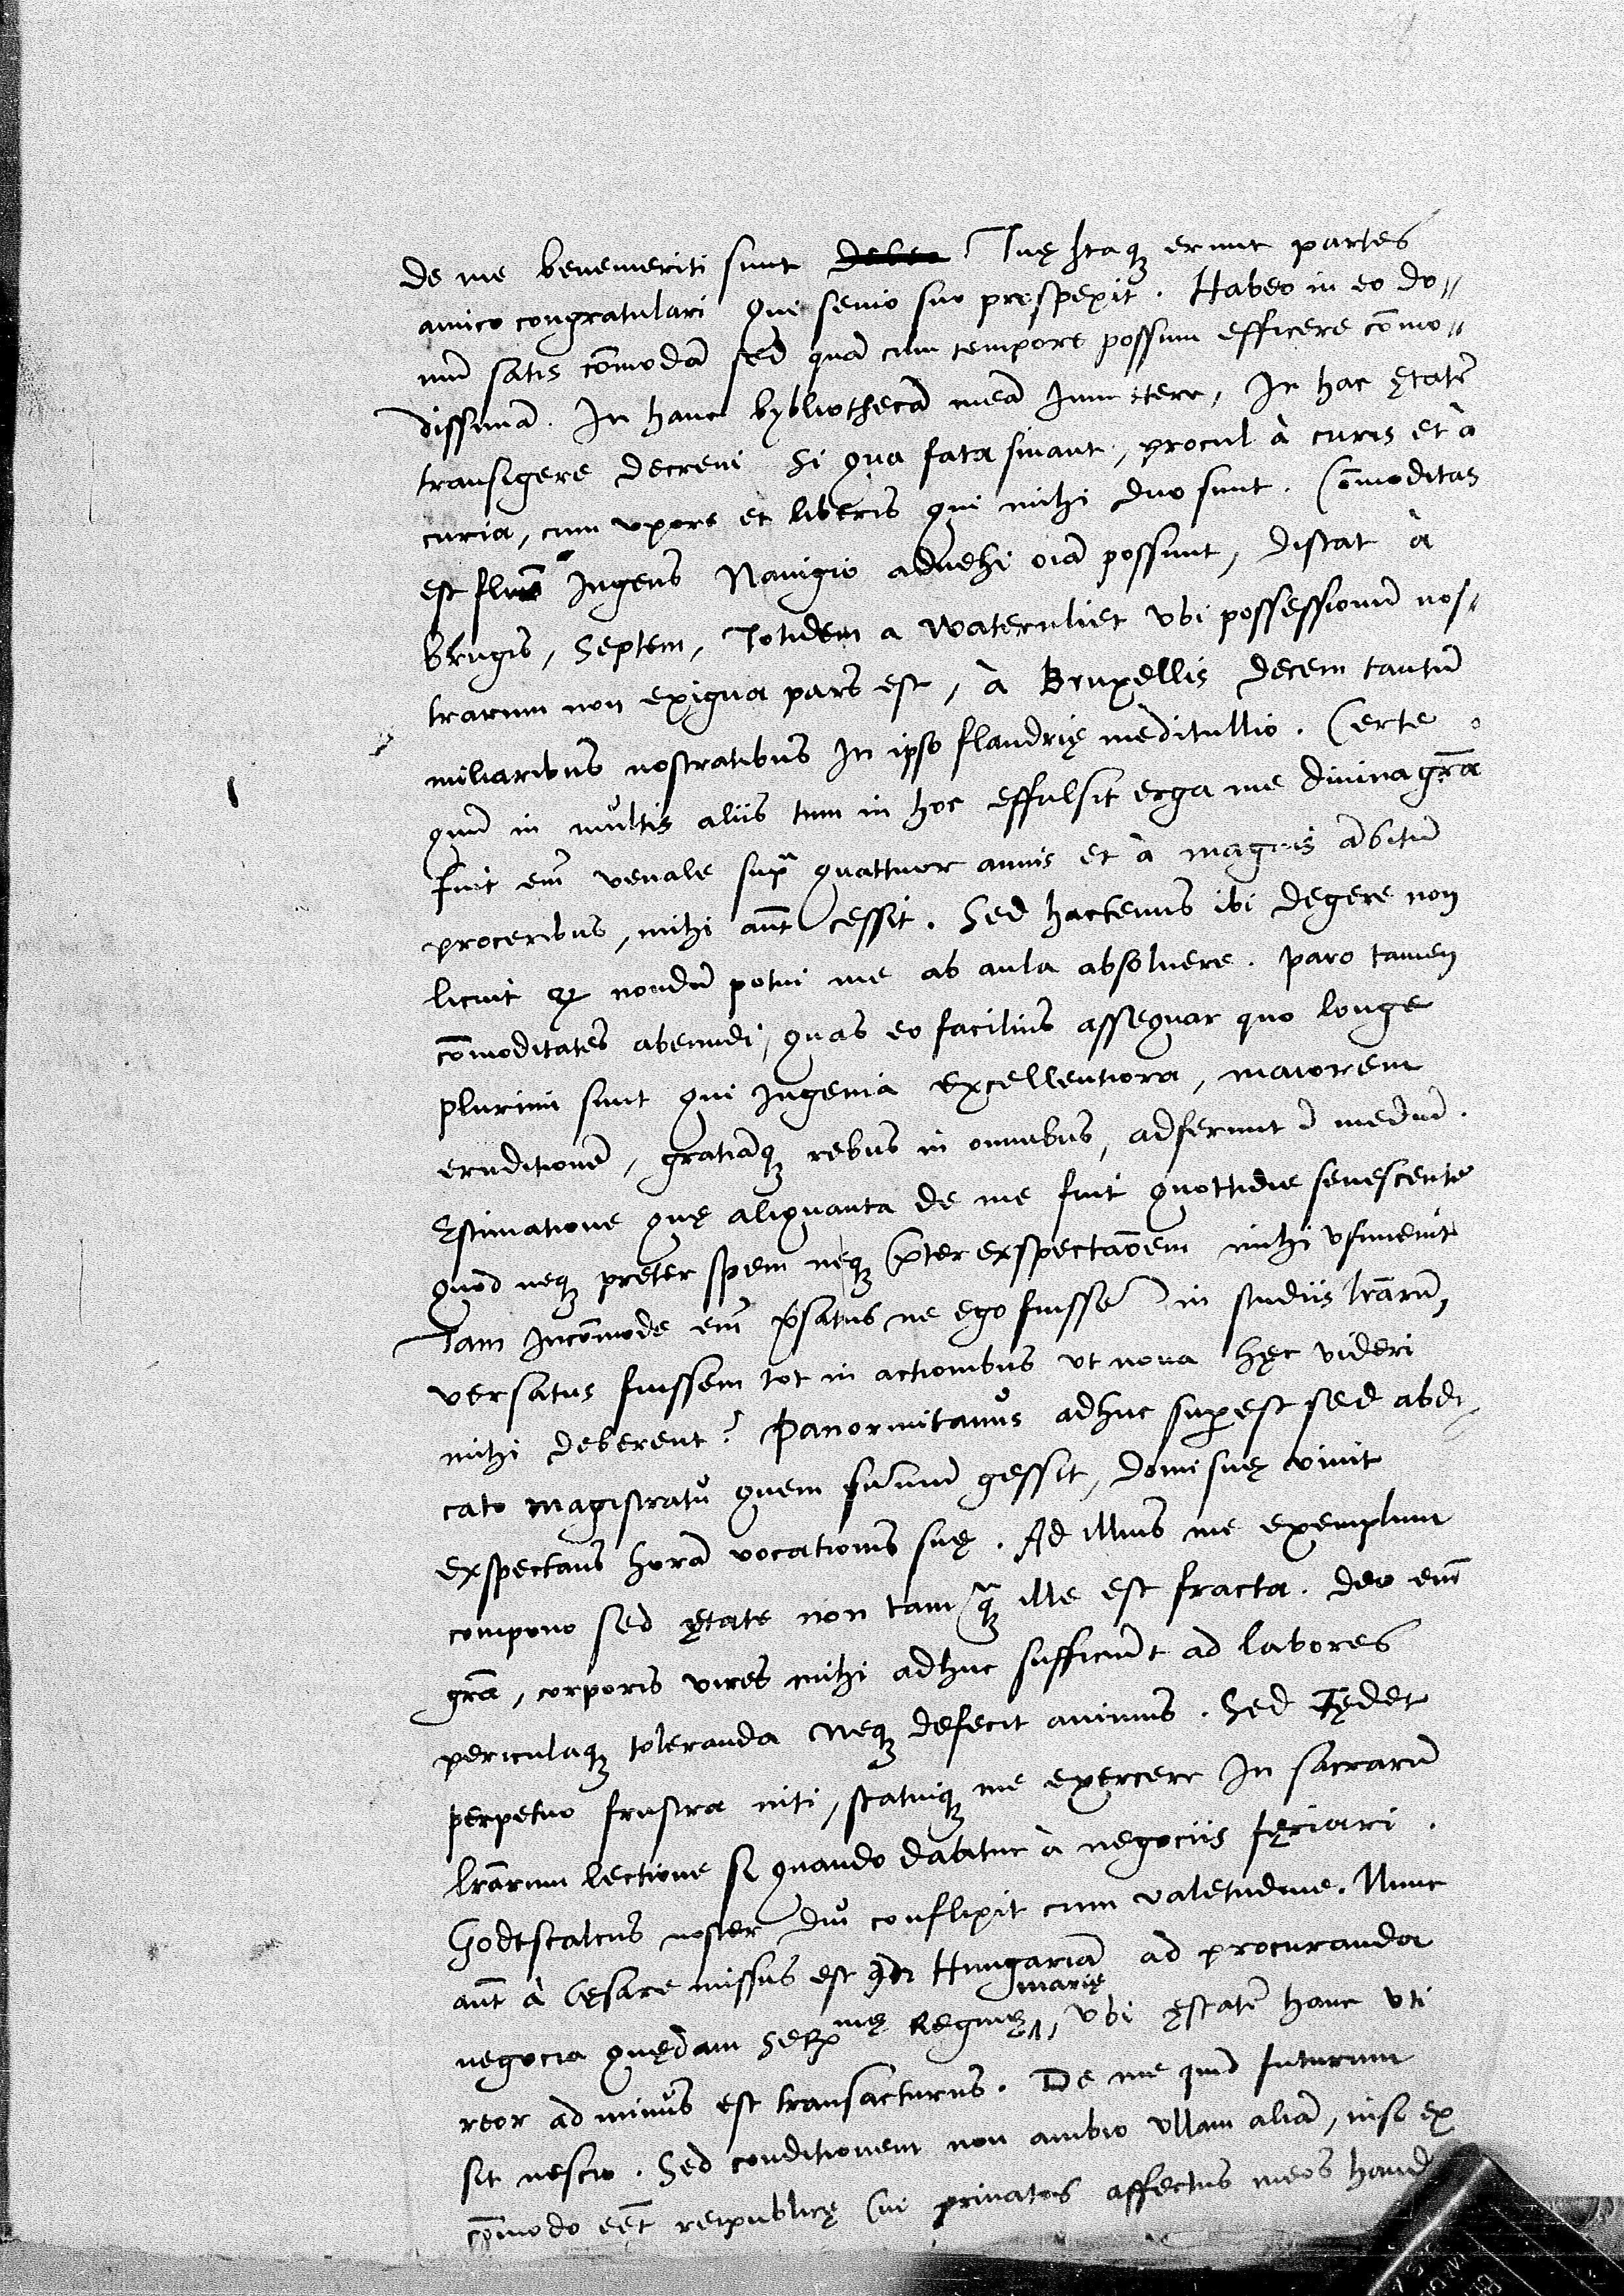 de me benemeriti sunt debeo Tuę Itaqȝ erunt partes
amico congratulari qui senio suo prospexit. Habeo in eo do〃
mũ satis cõmodã sed quã cum tempore possum efficere cõmo〃
dissimã. In hanc bybliothecã meã Immittere, In hac ętatẽ
transigere decreui Si qua fata sinant, procul à curis et à
curia, cum vxore et liberis qui mihi duo sunt. Cõmoditas
est Ingens Nauigio aduehi oĩa possunt, distat à
brugis, Septem, Totidem a Watervliet vbi possessionũ nos〃
trarum non exigua pars est, à Bruxellis decem tantũ
miliaribus nostratibus In ipso flandrię meditullio. Certe
quũ in multis aliis tum in hoc effulsit erga me diuina grã
fuit em̃ venale supᵃ quattuor annis et à magnis ãbitũ
proceribus, mihi aũt cessit. Sed hactenus ibi degere non
licuit qꝫ nondũ potui me ab aula absoluere. paro tamen
cõmoditates abeundi, quas eo facilius assequar quo longe
plurimi sunt qui Ingenia excellentiora, maiorem
eruditionẽ, gratiãqȝ rebus in omnibus, adferunt ĩ mediũ.
Estimatione quę aliquanta de me fuit quottidie senescente
quod neqȝ preter spem neqȝ p̃ter exspectãõem mihi vsuuenit
Tam Incõmode em̃ ṽsatus ne ego fuissẽ in studiis lr̃arũ,
versatus fuissem tot in actionibus vt noua hęc videri
mihi deberent? Panormitanus adhuc suꝑest sed abdi〃
cato magistratu quem sum̃um gessit, domi suę viuit
exspectans horã vocationis suę. Ad illius me exemplum
compono sed ętate non tam qȝᵃ ille est fracta. Deo em̃
grã, corporis vires mihi adhuc sufficiũt ad labores
periculaqȝ toleranda Neqȝ defecit animus. Sed Tędet
perpetuo frustra niti, statuiqȝ me exercere In sacrarũ
lr̃arum lectione si quando dabitur à negociis fęriari.
Godtscalcus noster diu conflixit cum valetudine. Nunc
aũt à Cęsare missus est In Hungariã ad procuranda
negocia quędam Serᵐᵉ Reginę marię, vbi ęstatẽ hanc vti
reor ad minus est transacturus. De me quid futurum
sit nescio. Sed conditionem non ambio vllam aliã, nisi ex
cõmodo eẽt reipublicę Cui priuatos affectus meos haud